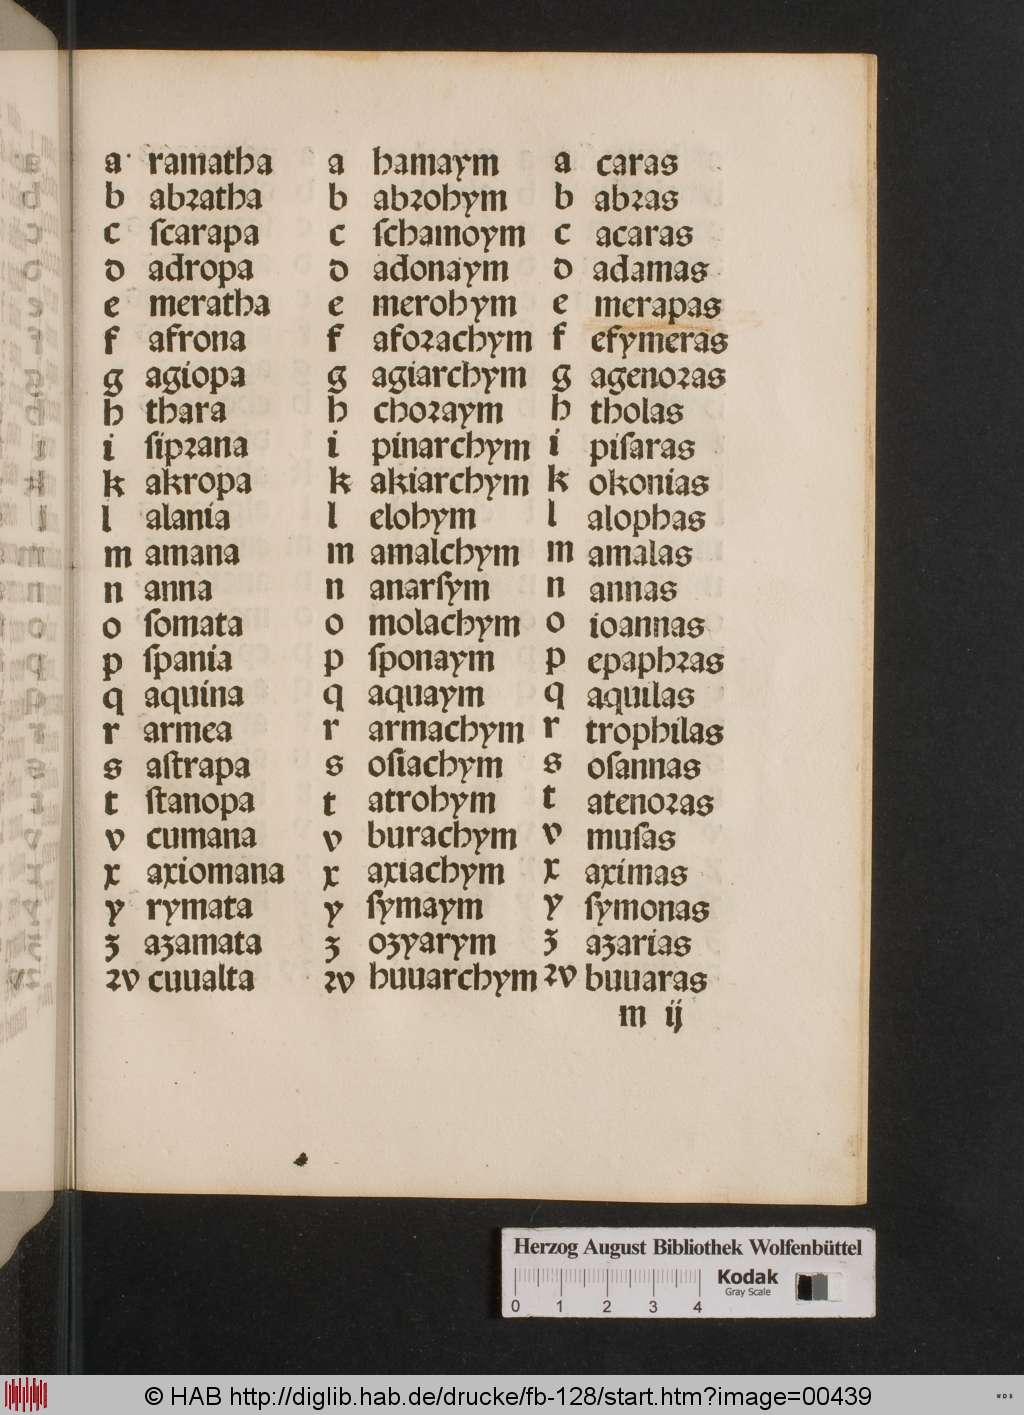 a ramatha a hamaym a caras
b abꝛatha b abꝛohym b abꝛas
c ſcarapa c ſchamoym c acaras
d adropa d adonaym d adamas
e meratha e merohym e merapas
f afrona f afoꝛachym f efymeras
g agiopa g agiarchym g agenoꝛas
h thara h choꝛaym h tholas
i ſipꝛana i pinarchym i piſaras
k akropa k akiarchym k okonias
l alania l elohym l alophas
m amana m amalchym m amalas
n anna n anarſym n annas
o ſomata o molachym o ioannas
p ſpania p ſponaym p epaphꝛas
q aquina q aquaym q aquilas
r armea r armachym r trophilas
s aſtrapa s oſiachym s oſannas
t ſtanopa t atrohym t atenoꝛas
v cumana v burachym v muſas
x axiomana x axiachym x aximas
y rymata y ſymaym y ſymonas
ʒ aʒamata ʒ oʒyarym ʒ aʒarias
ꝛv cuualta ꝛv huuarchym ꝛv buuaras
m ij
Herzog August Bibliothek Wolfenbüttel
Kodak
Gray Scale
0 1 2 3 4
© HAB http://diglib.hab.de/drucke/fb-128/start.htm?image=00439